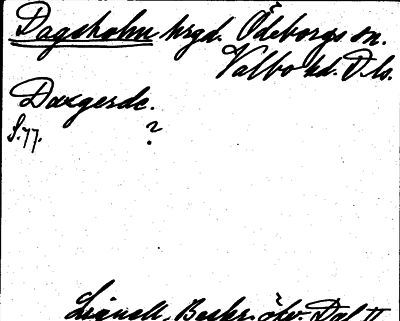 Dagsholm hrgd. Ödeborgs sn.
Valbo hd. Dls.
Daxgerde.
S. 77. ?
Lignell, Beskr. öfv. Dal II